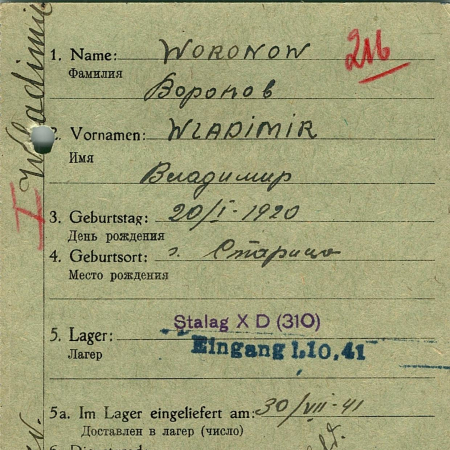 Wladimir
1. Name: WORONOW 216
Фамилия
Воронов
2. Vornamen: WLADIMIR
Имя
Владимир
I
3. Geburtstag: 20/I-1920
День рождения
4. Geburtsort: г. Старица
Место рождения
Stalag X D (310)
5. Lager:
Лагер
Eingang 1.10.41
5a. Im Lager eingeliefert am: 30/VII-41
Доставлен в лагер (число)